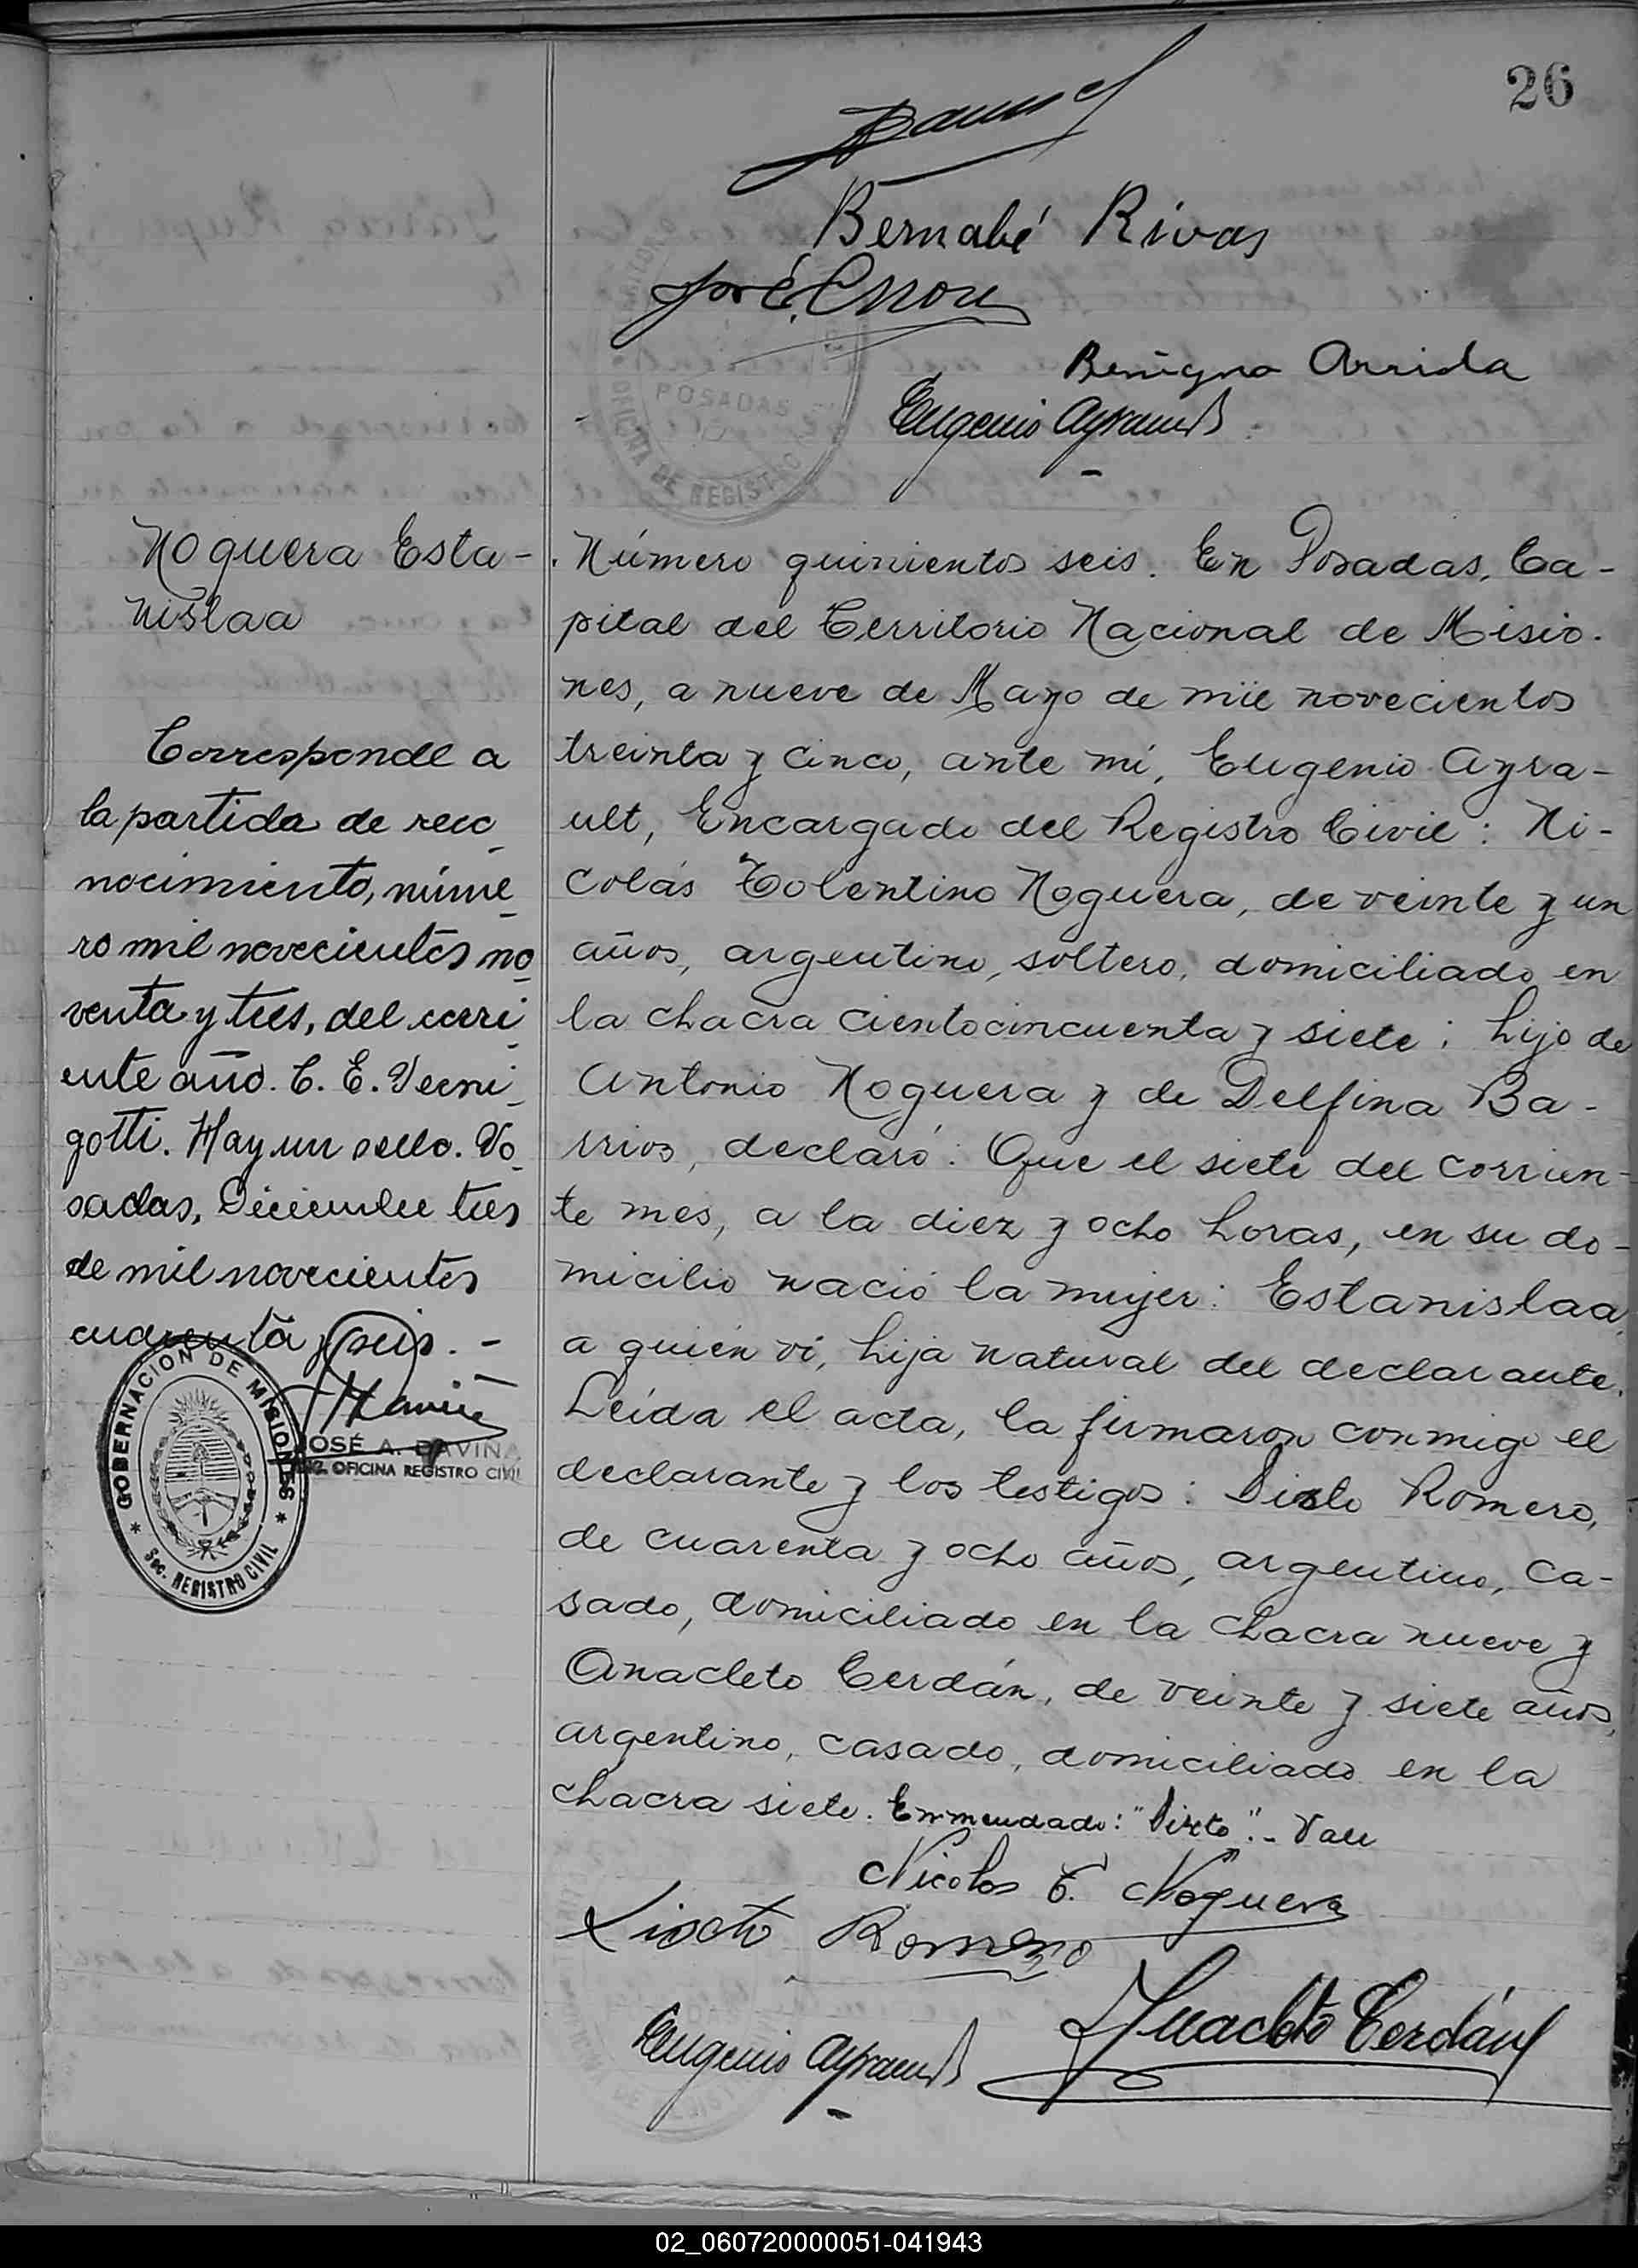 26
Bernabé Rivas
José
Benigno Arrida
Eugenio Ayrault
POSADAS
OFICINA DE REGISTRO
Noguera Esta-
nislaa
Corresponde a
la partida de reco
nocimiento, núme
ro mil novecientos no
venta y tres, del corri
ente año. C. E. Verni
gotti. Hay un sello. Po
sadas, Diciembre tres
de mil novecientos
cuarenta y seis. -
GOBERNACION DE MISIONES
Sec. REGISTRO CIVIL
JOSÉ A. DAVIÑA
OFICINA REGISTRO CIVIL
Número quinientos seis. En Posadas, Ca-
pital del Territorio Nacional de Misio-
nes, a nueve de Mayo de mil novecientos
treinta y cinco, ante mí, Eugenio Ayra-
ult, Encargado del Registro Civil: Ni-
colás Tolentino Noguera, de veinte y un
años, argentino, soltero, domiciliado en
la chacra cientocincuenta y siete; hijo de
Antonio Noguera y de Delfina Ba-
rrios, declaró: Que el siete del corrien-
te mes, a la diez y ocho horas, en su do-
micilio nació la mujer: Estanislaa,
a quién ví, hija natural del declarante.
Leída el acta, la firmaron conmigo el
declarante y los testigos: Sixto Romero,
de cuarenta y ocho años, argentino, ca-
sado, domiciliado en la chacra nueve y
Anacleto Cerdán, de veinte y siete años,
argentino, casado, domiciliado en la
chacra siete. Enmendado: "Sixto".- Vale
Nicolas T. Noguera
Sixto Romero
Anacleto Cerdán
Eugenio Ayrault
02_060720000051-041943